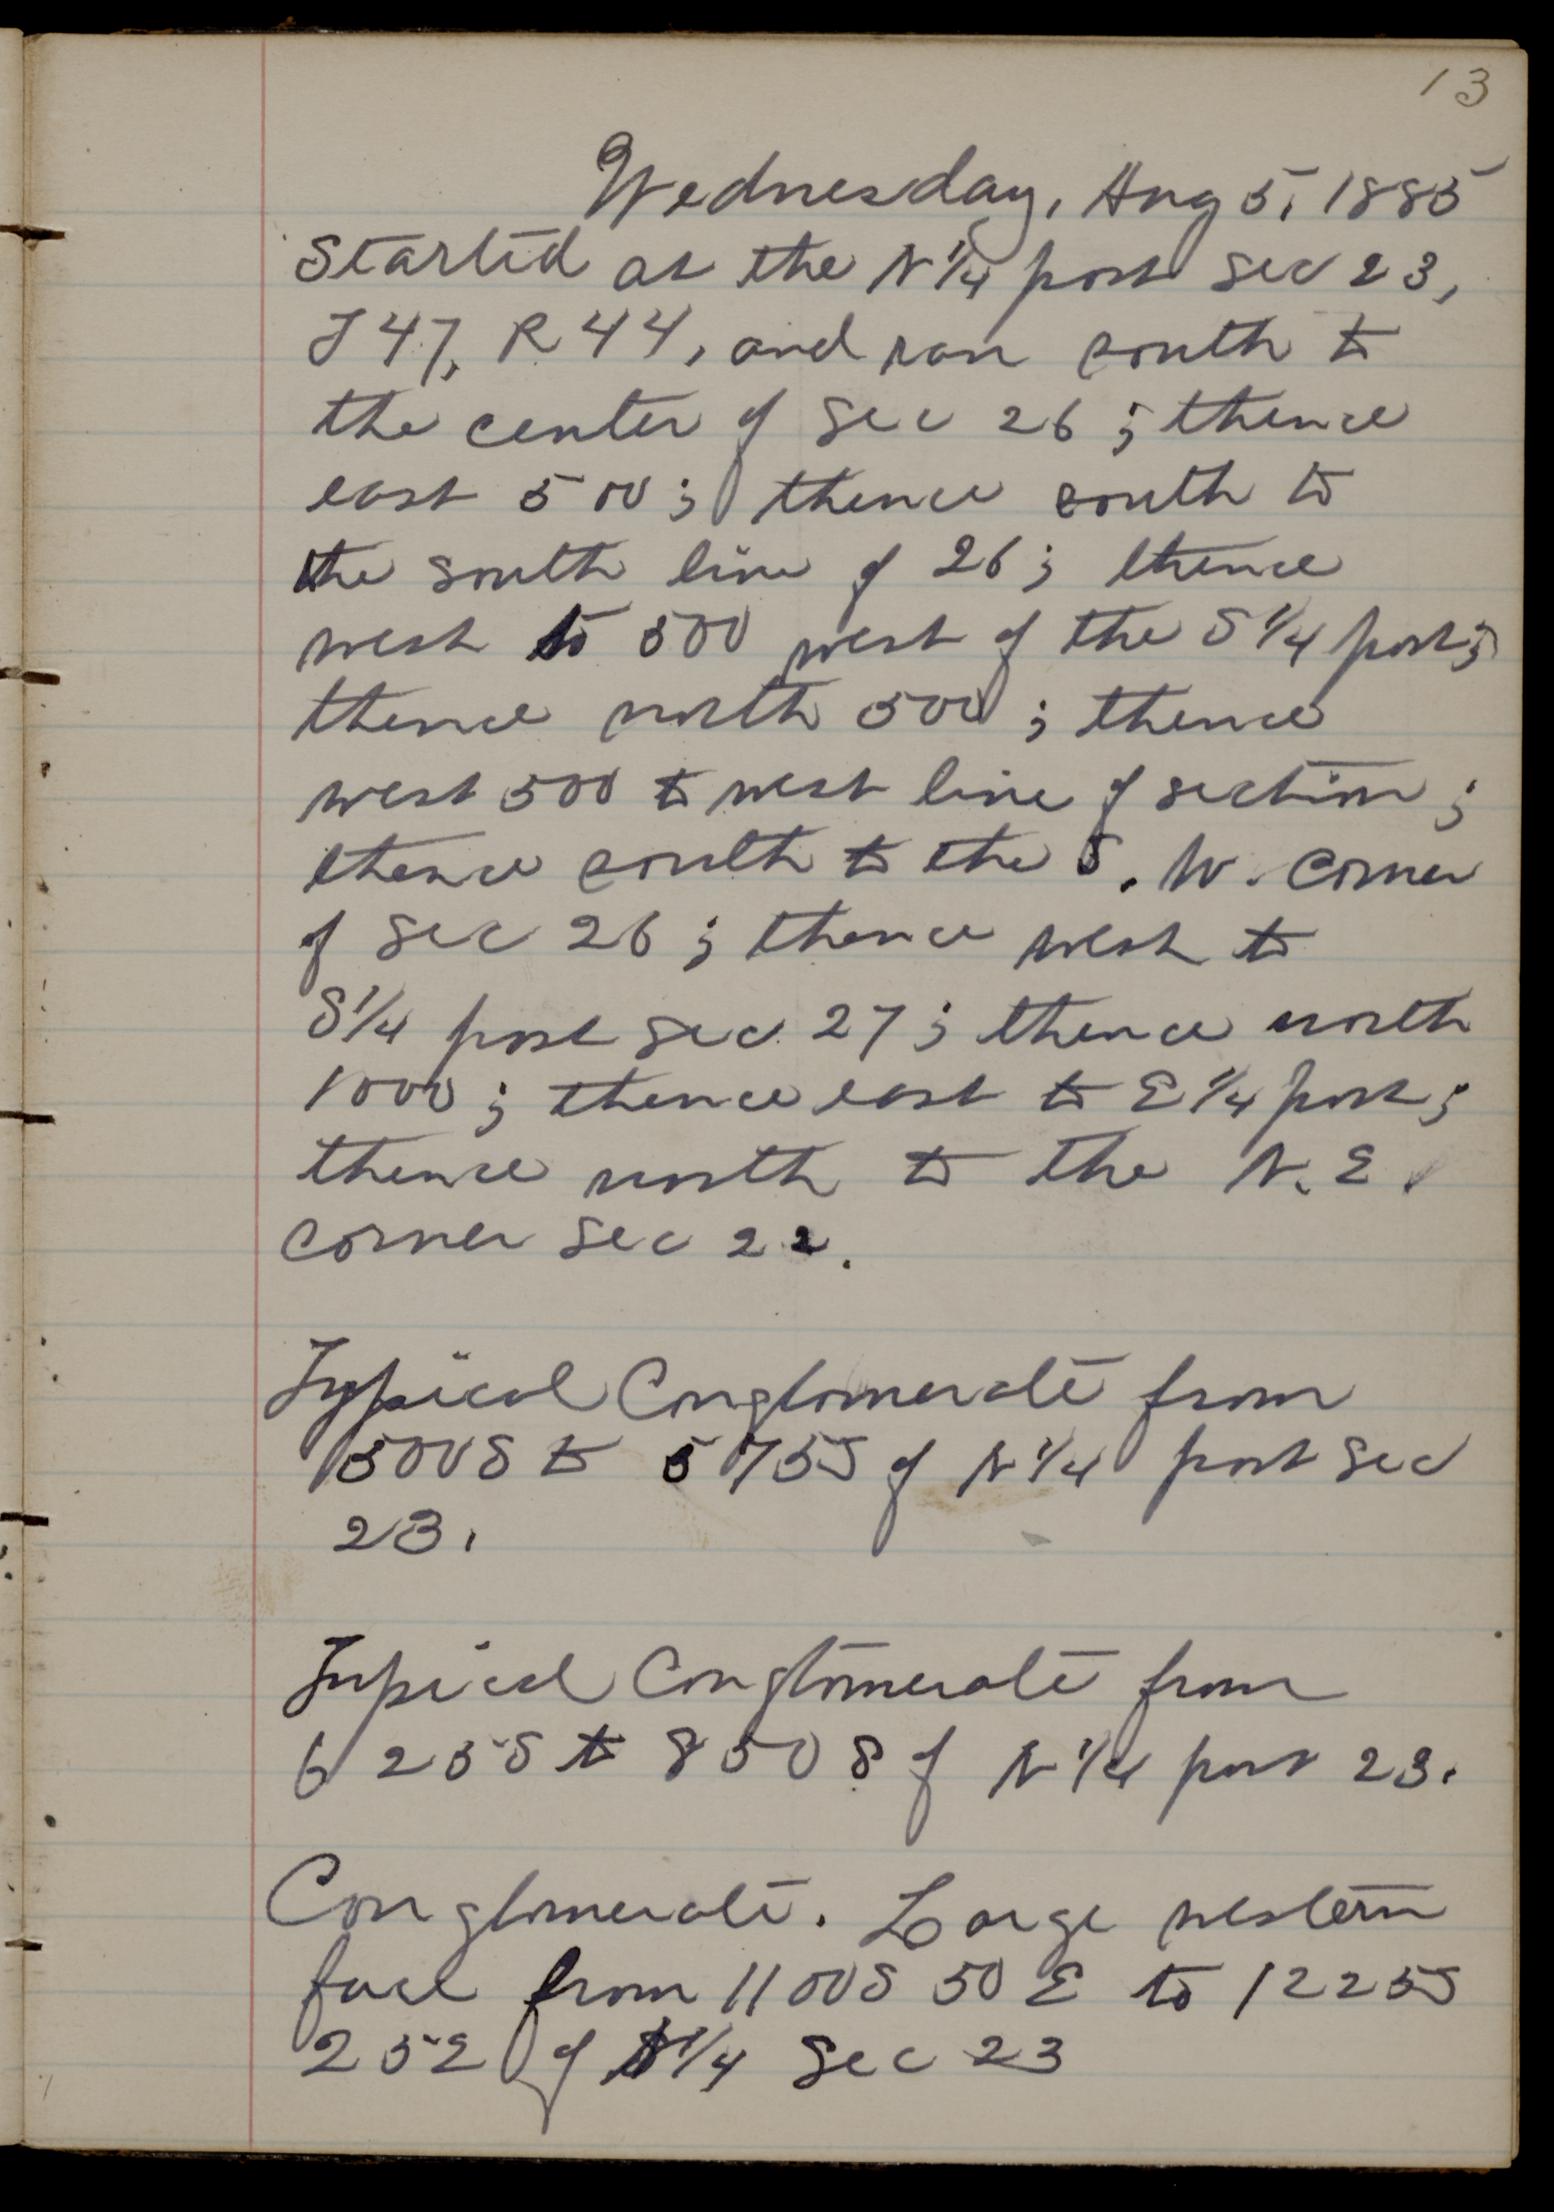 13
Wednesday, Aug 5, 1885
Started at the N 1/4 post Sec 23,
T 47, R 44, and ran south to
the center of Sec 26; thence
east 500; thence south to
the south line of 26; thence
west to 500 west of the S 1/4 post;
thence north 500; thence
west 500 to west line of section;
thence south to the S. W. corner
of Sec 26; thence west to
S 1/4 post Sec 27; thence north
1000; thence east to E 1/4 post;
thence north to the N. E.
corner Sec 22.
Typical Conglomerate from
500 S to 575 S of N 1/4 post Sec
23.
Typical Conglomerate from
625 S to 850 S of N 1/4 post 23.
Conglomerate. Large western
face from 1100 S 50 E to 1225 S
25 E of 1/4 Sec 23